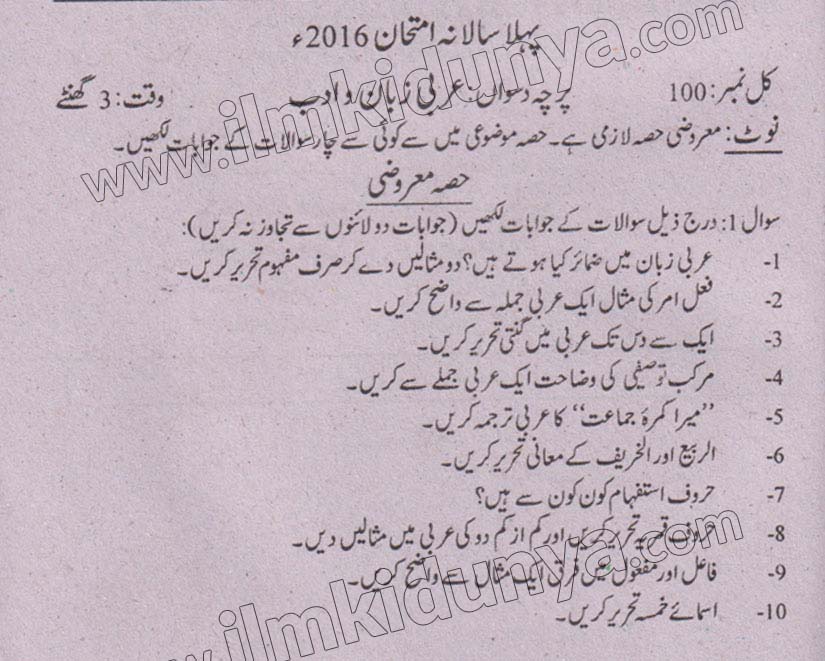 پہلا سالانہ امتحان 2016ء
کل نمبر: 100 پرچہ دسواں: عربی زبان و ادب وقت: 3 گھنٹے
نوٹ: معروضی حصہ لازمی ہے۔ حصہ موضوعی میں سے کوئی سے چار سوالات کے جوابات لکھیں۔
حصہ معروضی
سوال 1: درج ذیل سوالات کے جوابات لکھیں (جوابات دو لائنوں سے تجاوز نہ کریں):
1- عربی زبان میں ضمائر کیا ہوتے ہیں؟ دو مثالیں دے کر صرف مفہوم تحریر کریں۔
2- فعل امر کی مثال ایک عربی جملہ سے واضح کریں۔
3- ایک سے دس تک عربی میں گنتی تحریر کریں۔
4- مرکب توصیفی کی وضاحت ایک عربی جملے سے کریں۔
5- ''میرا کمرۂ جماعت'' کا عربی ترجمہ کریں۔
6- الربیع اور الخریف کے معانی تحریر کریں۔
7- حروف استفہام کون کون سے ہیں؟
8- حروف قمریہ تحریر کریں اور کم از کم دو کی عربی میں مثالیں دیں۔
9- فاعل اور مفعول میں فرق ایک مثال سے واضح کریں۔
10- اسمائے خمسہ تحریر کریں۔
www.ilmkidunya.com
www.ilmkidunya.com